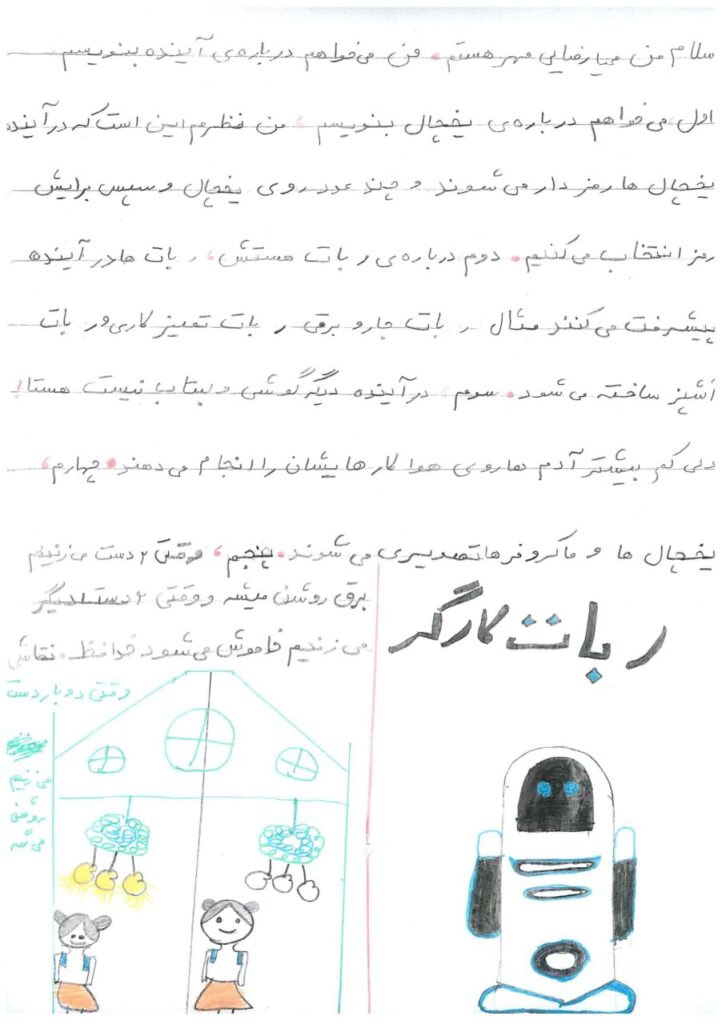 سلام من میارضایی مهر هستم. من می‌خواهم درباره‌ی آینده بنویسم.
اول، می‌خواهم درباره‌ی یخچال بنویسم، من نظرم این است که در آینده
یخچال ها رمز دار می‌شوند و چند عدد روی یخچال و سپس برایش
رمز انتخاب می‌کنیم. دوم درباره‌ی ربات هستش، ربات ها در آینده
پیشرفت می‌کنند مثال ربات جارو برقی ربات تمیز کاری و ربات
آشپز ساخته می‌شود. سوم، در آینده دیگر گوشی و لبتاب نیست هستا!
ولی کم بیشتر آدم ها روی هوا کار هایشان را انجام می‌دهند. چهارم،
یخچال ها و ماکروفرها تصویری می‌شوند. پنجم، وقتی ۲ دست می‌زنیم
برق روشن میشه و وقتی ۲ دست دیگر
می‌زنیم خاموش می‌شود خدافظ. نقاشی
ربات کارگر
وقتی دو بار دست
می‌زنیم
روشن
می‌شه